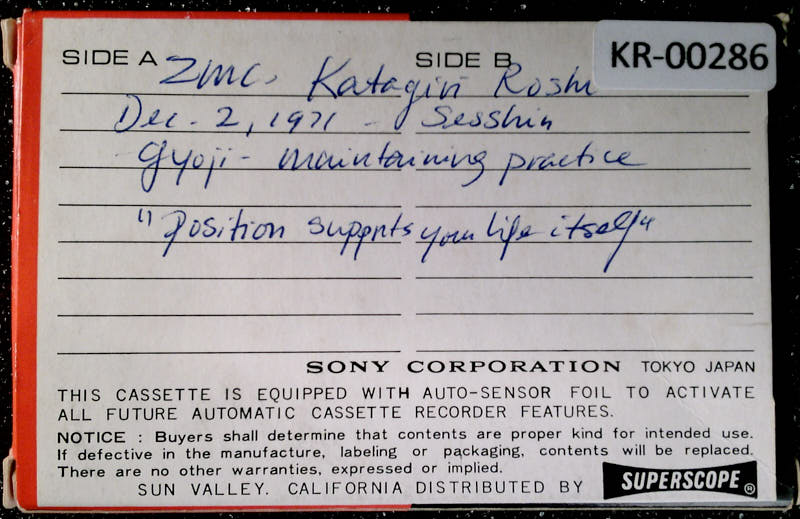 SIDE A SIDE B KR-00286
ZMC. Katagiri Roshi
Dec. 2, 1971 - Sesshin
Gyoji - maintaining practice
"Position supports your life itself"
SONY CORPORATION TOKYO JAPAN
THIS CASSETTE IS EQUIPPED WITH AUTO-SENSOR FOIL TO ACTIVATE
ALL FUTURE AUTOMATIC CASSETTE RECORDER FEATURES.
NOTICE : Buyers shall determine that contents are proper kind for intended use.
If defective in the manufacture, labeling or packaging, contents will be replaced.
There are no other warranties, expressed or implied.
SUN VALLEY. CALIFORNIA DISTRIBUTED BY SUPERSCOPE®